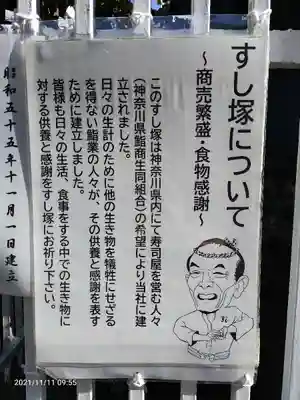 すし塚について
〜商売繁盛・食物感謝〜
このすし塚は神奈川県内にて寿司屋を営む人々
(神奈川県鮨商生同組合)の希望により当社に建
立されました。
日々の生計のために他の生き物を犠牲にせざる
を得ない鮨業の人々が、その供養と感謝を表す
ために建立しました。
皆様も日々の生活、食事をする中での生き物に
対する供養と感謝をすし塚にお祈り下さい。
昭和五十五年十一月一日建立
2021/11/11 09:55